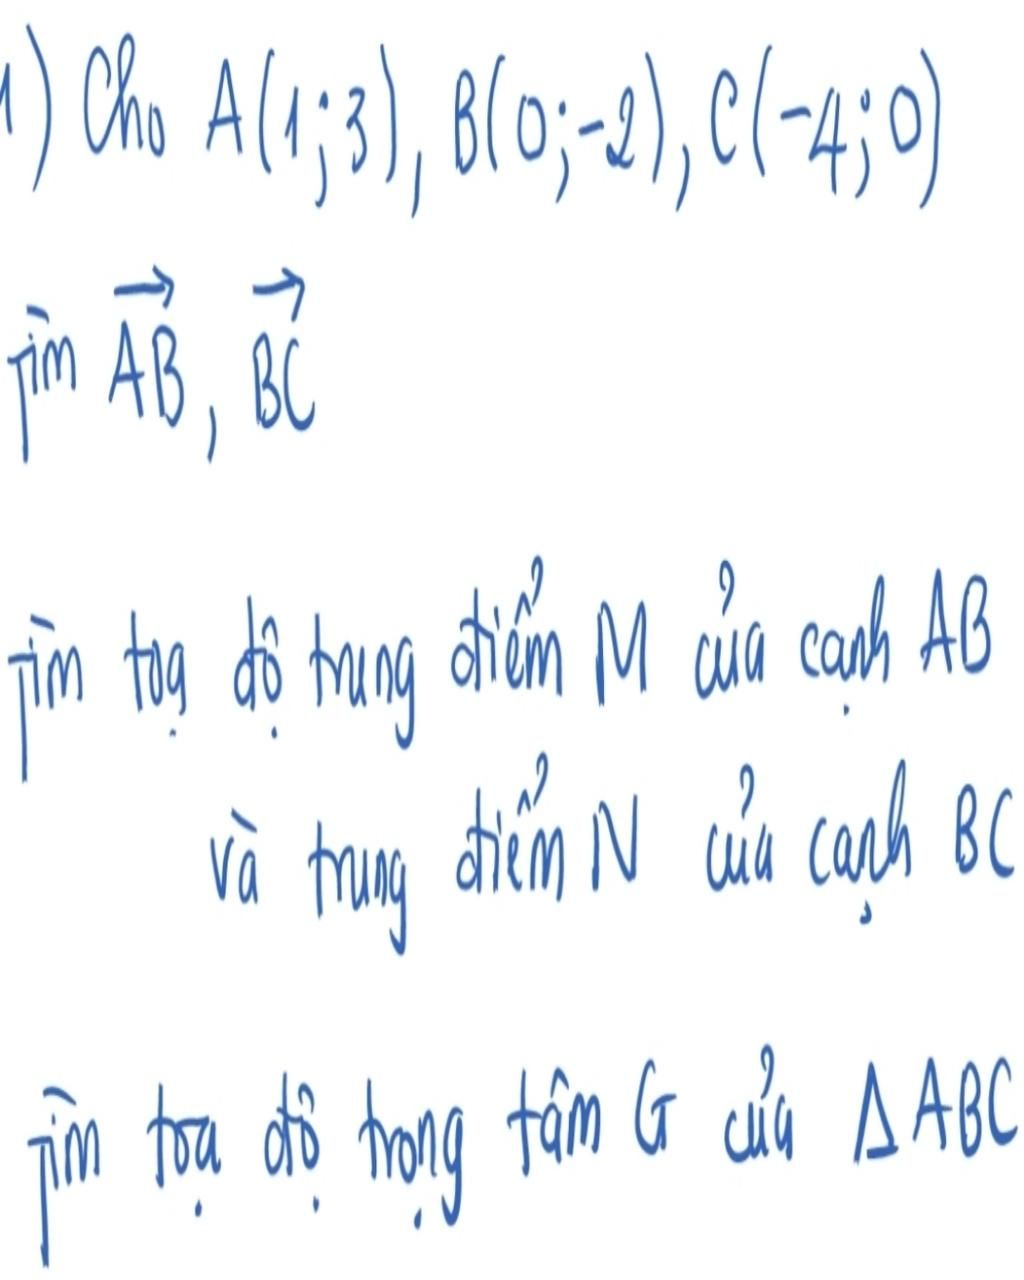 1) Cho A(1;3), B(0;-2), C(-4;0)
Tìm \overrightarrow{AB}, \overrightarrow{BC}
Tìm toạ độ trung điểm M của cạnh AB
và trung điểm N của cạnh BC
Tìm toạ độ trọng tâm G của Δ ABC